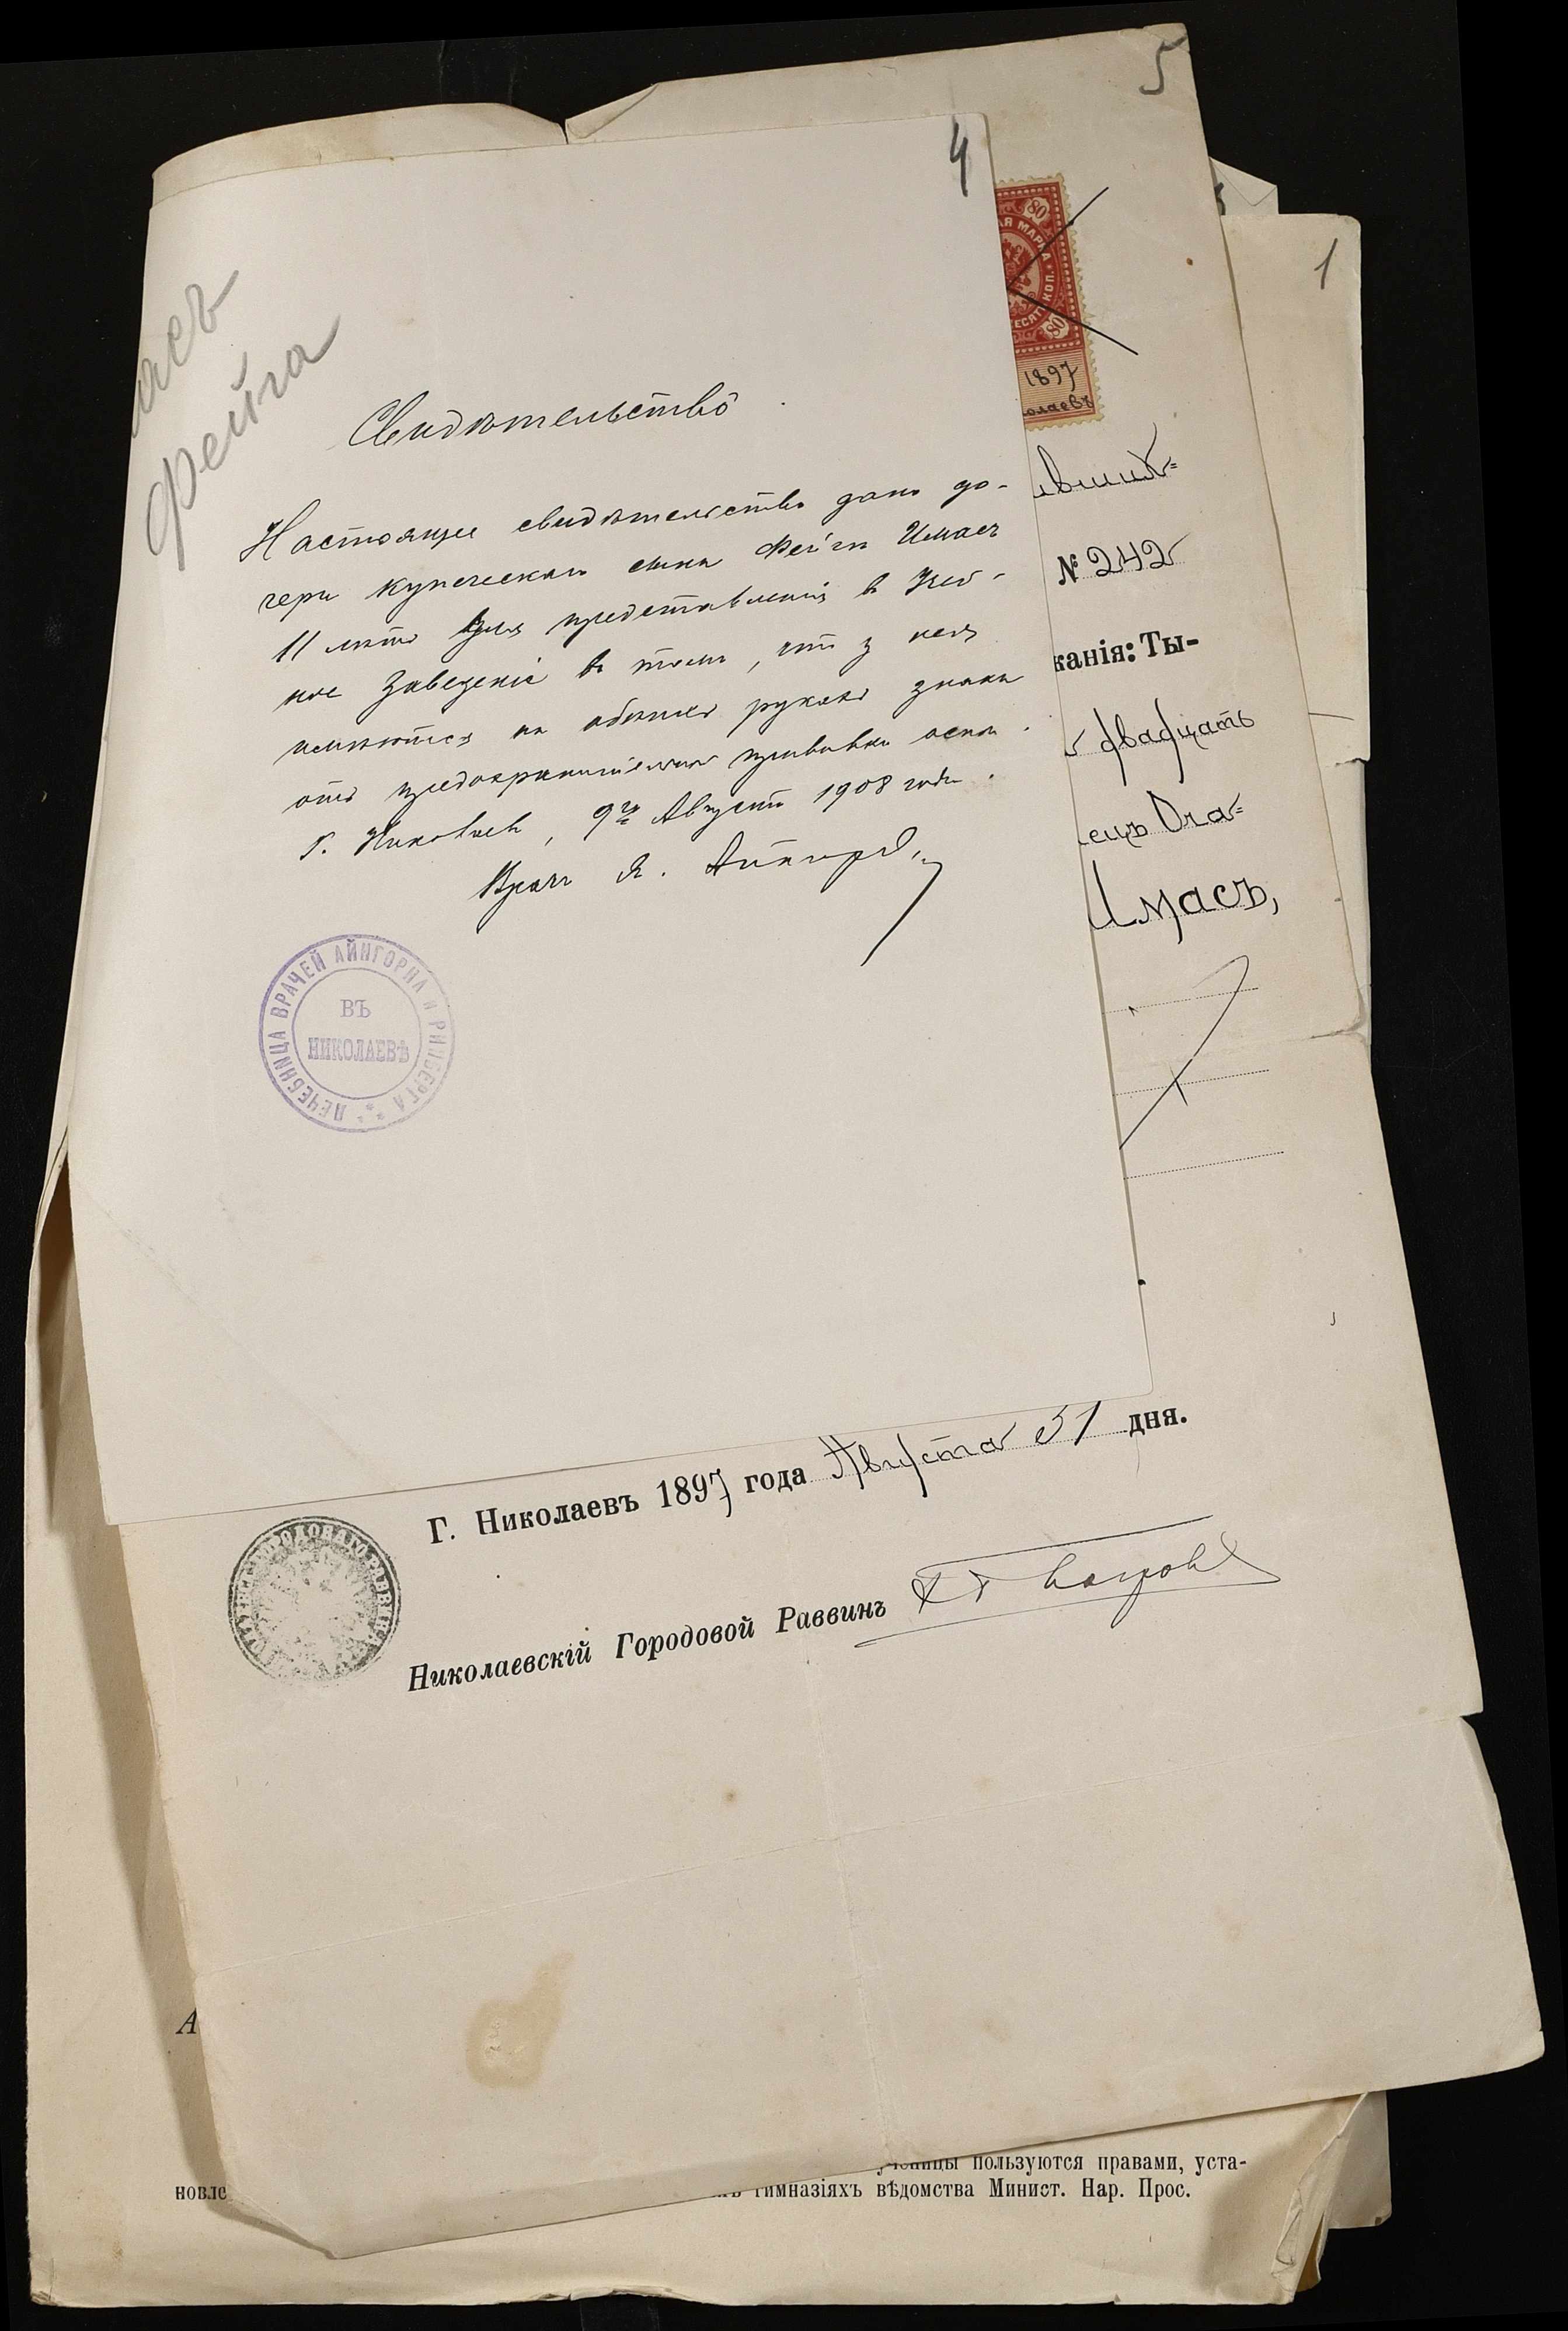 5
4
1
асъ
Фейга
80
1897
олаевъ
Свидѣтельство
Настоящее свидѣтельство дано до-
чери купеческаго сына Фейгѣ Имасъ
11 лѣтъ для представленія в учеб-
ное Заведеніе въ томъ, что у нея
имѣются на обѣихъ рукахъ знаки
отъ предохранительной прививки оспы.
г. Николаевъ, 9го Августа 1908 года.
Врачъ Я. Айнгорнъ
ЛЕЧЕБНИЦА ВРАЧЕЙ АЙНГОРНА И РИНБЕРГА
ВЪ
НИКОЛАЕВѢ
вшихъ=
№ 242
канія: Ты-
двадцать
ецъ Оча=
Имасъ,
Г. Николаевъ 1897 года Августа 31 дня.
Николаевскій Городовой Раввинъ
А
ученицы пользуются правами, уста-
новле гимназіяхъ вѣдомства Минист. Нар. Прос.